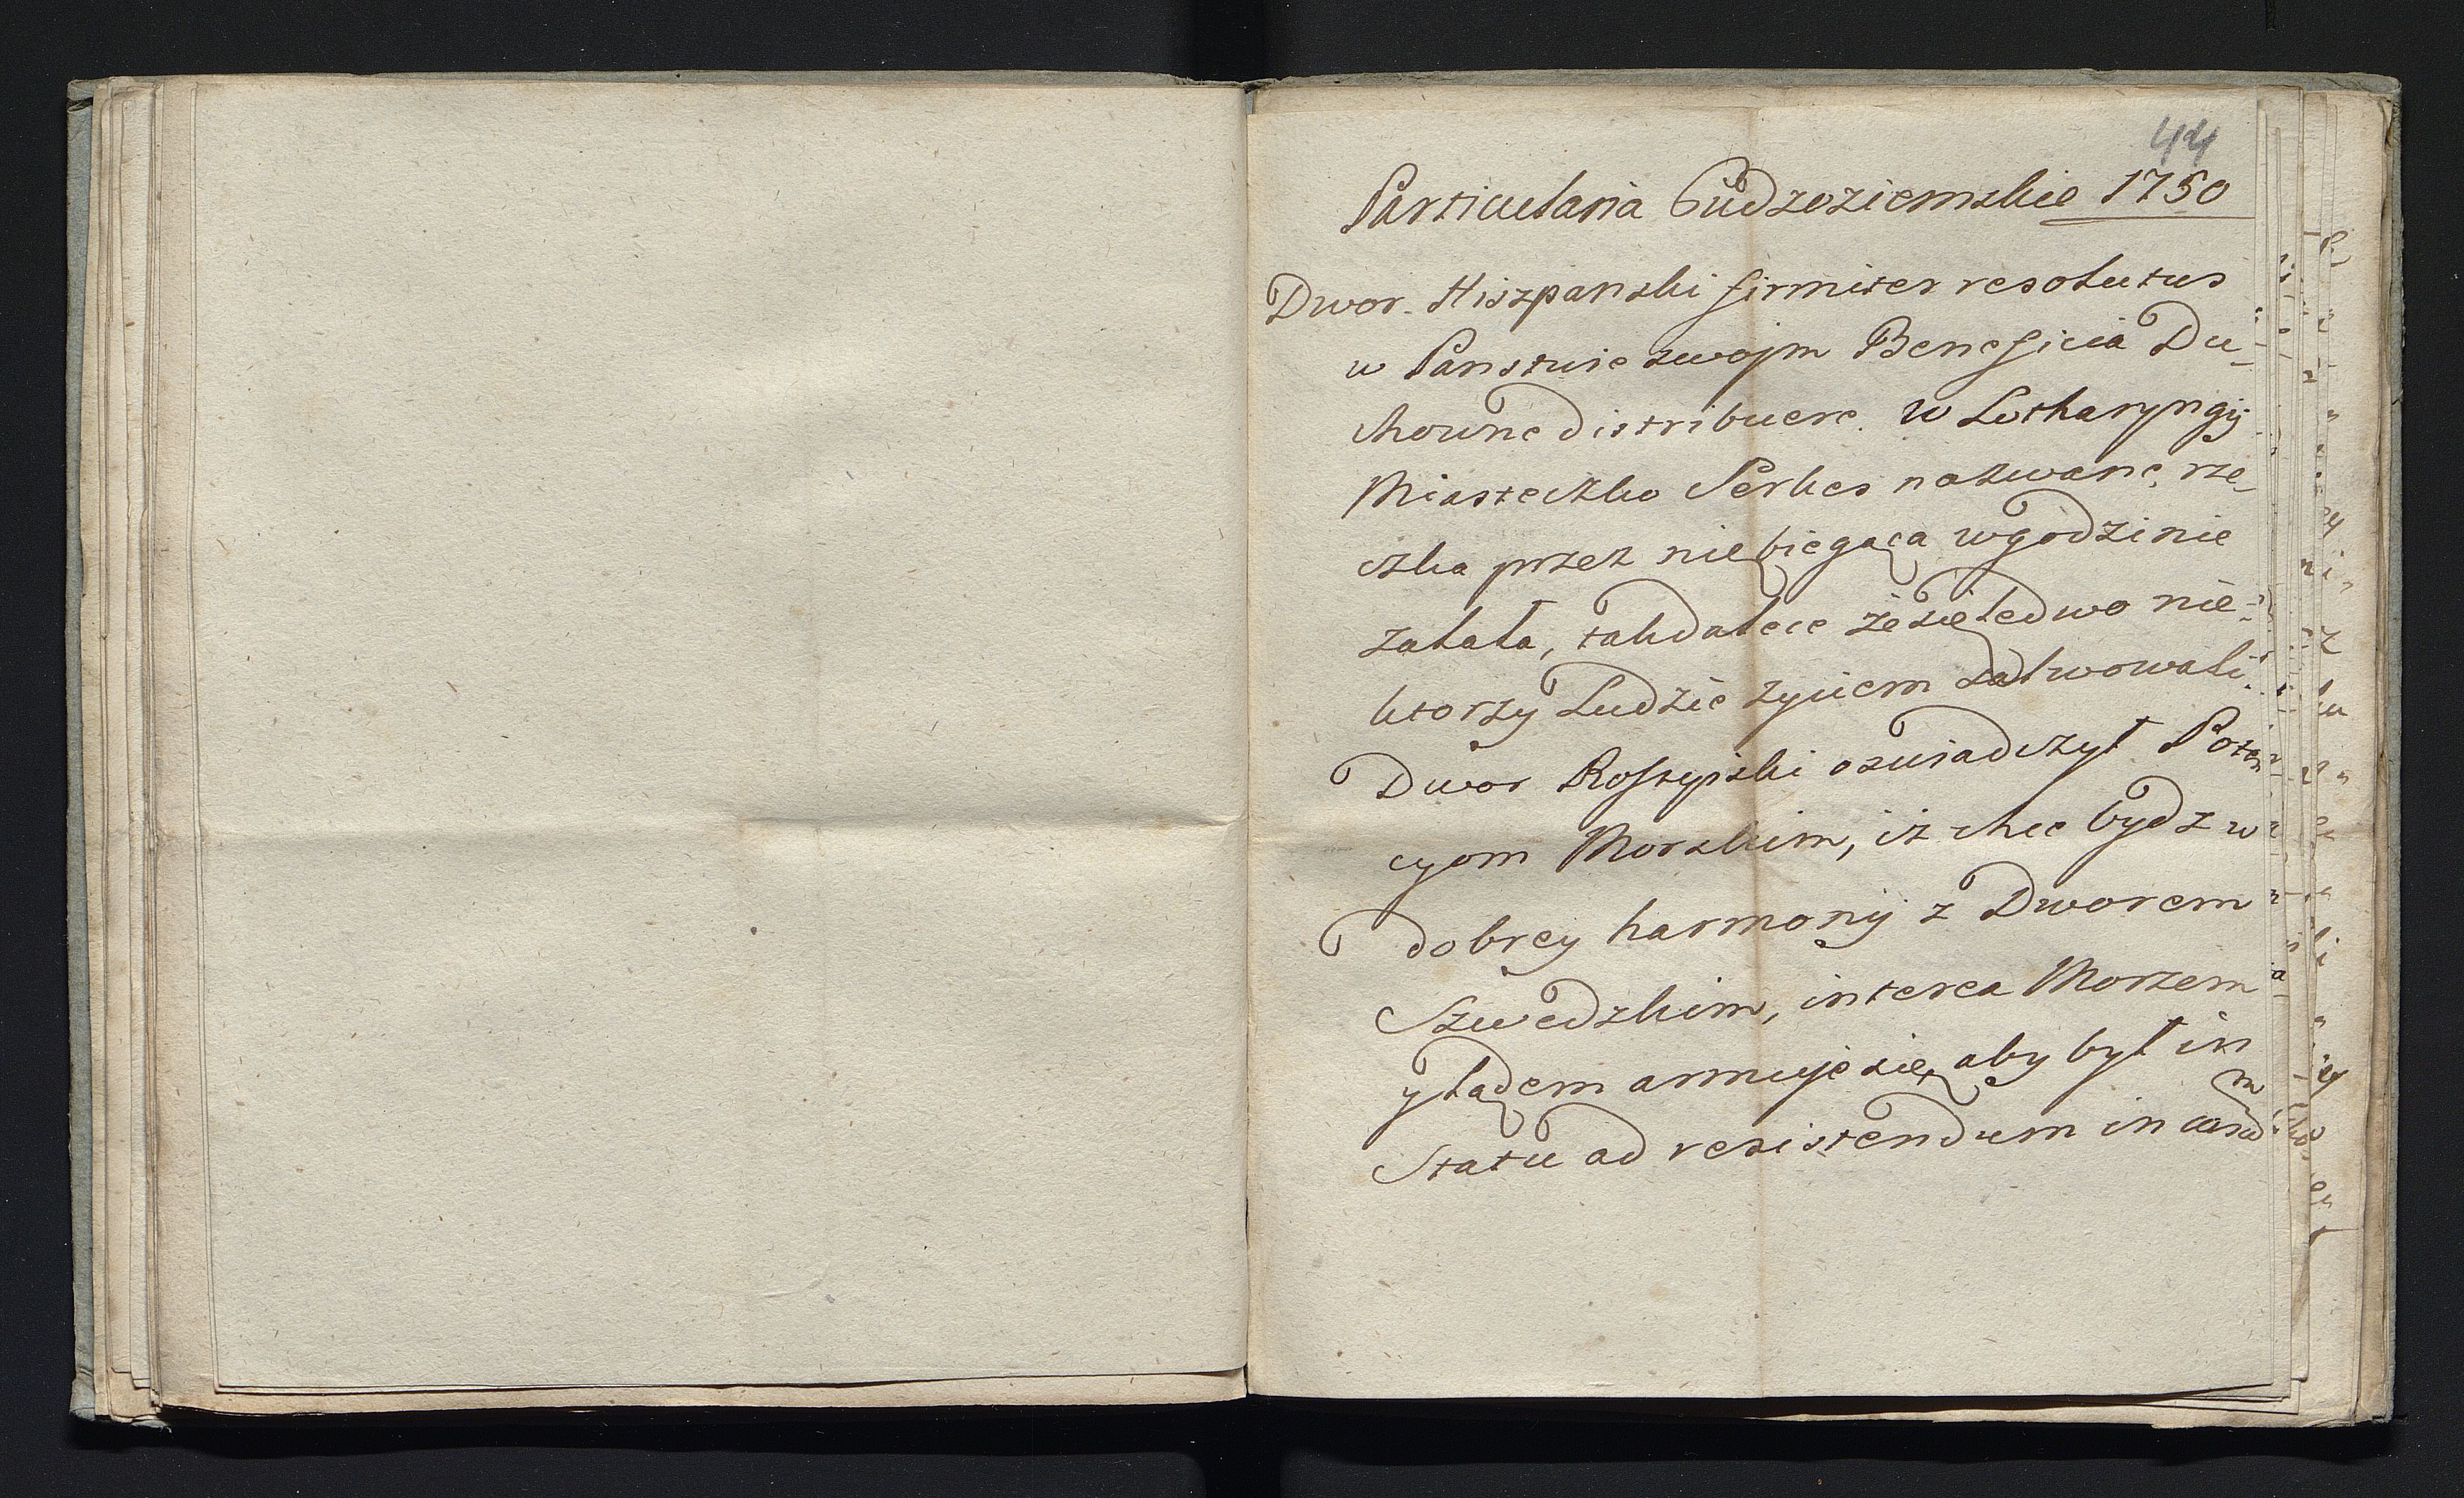 44
Particularia Cudzoziemskie 1750
Dwor Hiszpanski firmiter resolutus
w Panstwie swojm Beneficia Du-
chowne distribuere. W Lotharyngij
Miasteczko Perkes nazwane, rze-
czka przez nie bięgaca w godzinie
zalała, tak dalece że się ledwo nie-
ktorzy Ludzie zyciem salwowali.
Dwor Rossyiski oswiadczył Poten
cyom Morskim, iż chce bydz w
dobrey harmonij z Dworem
Szwedzkim, interea Morzem
y lądem armuje się, aby był in
Statu ad resistendum in casum